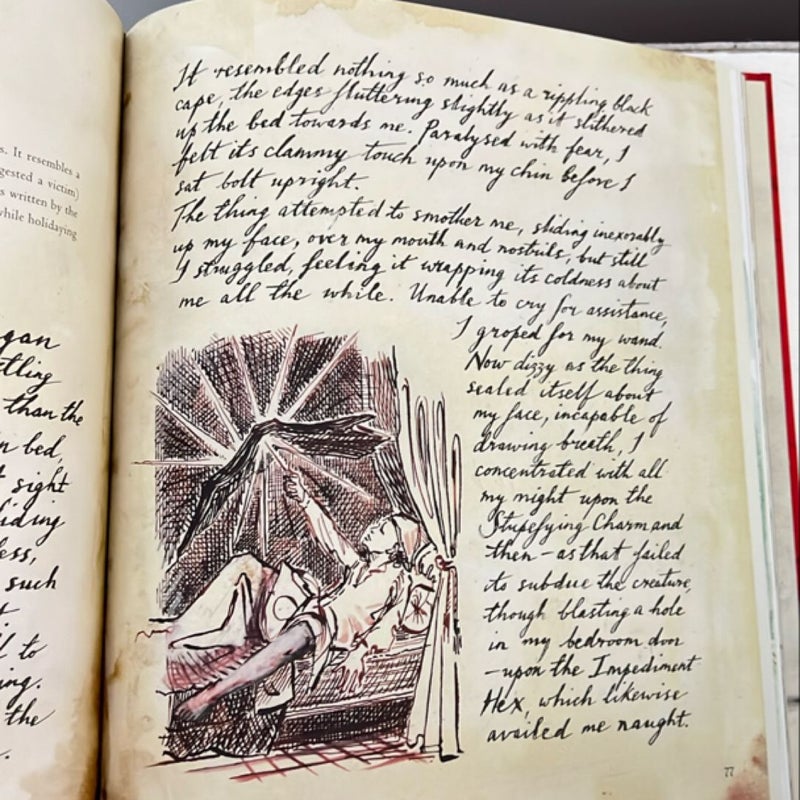 s. It resembles a
gested a victim)
s written by the
while holidaying
gan
tling
than the
n bed,
sight
iding
less,
such
to
ing.
the
It resembled nothing so much as a rippling black
cape, the edges fluttering slightly as it slithered
up the bed towards me. Paralysed with fear, I
felt its clammy touch upon my chin before I
sat bolt upright.
The thing attempted to smother me, sliding inexorably
up my face, over my mouth and nostrils, but still
I struggled, feeling it wrapping its coldness about
me all the while. Unable to cry for assistance,
I groped for my wand.
Now dizzy as the thing
sealed itself about
my face, incapable of
drawing breath, I
concentrated with all
my might upon the
Stupefying Charm and
then – as that failed
to subdue the creature,
though blasting a hole
in my bedroom door
– upon the Impediment
Hex, which likewise
availed me naught.
77